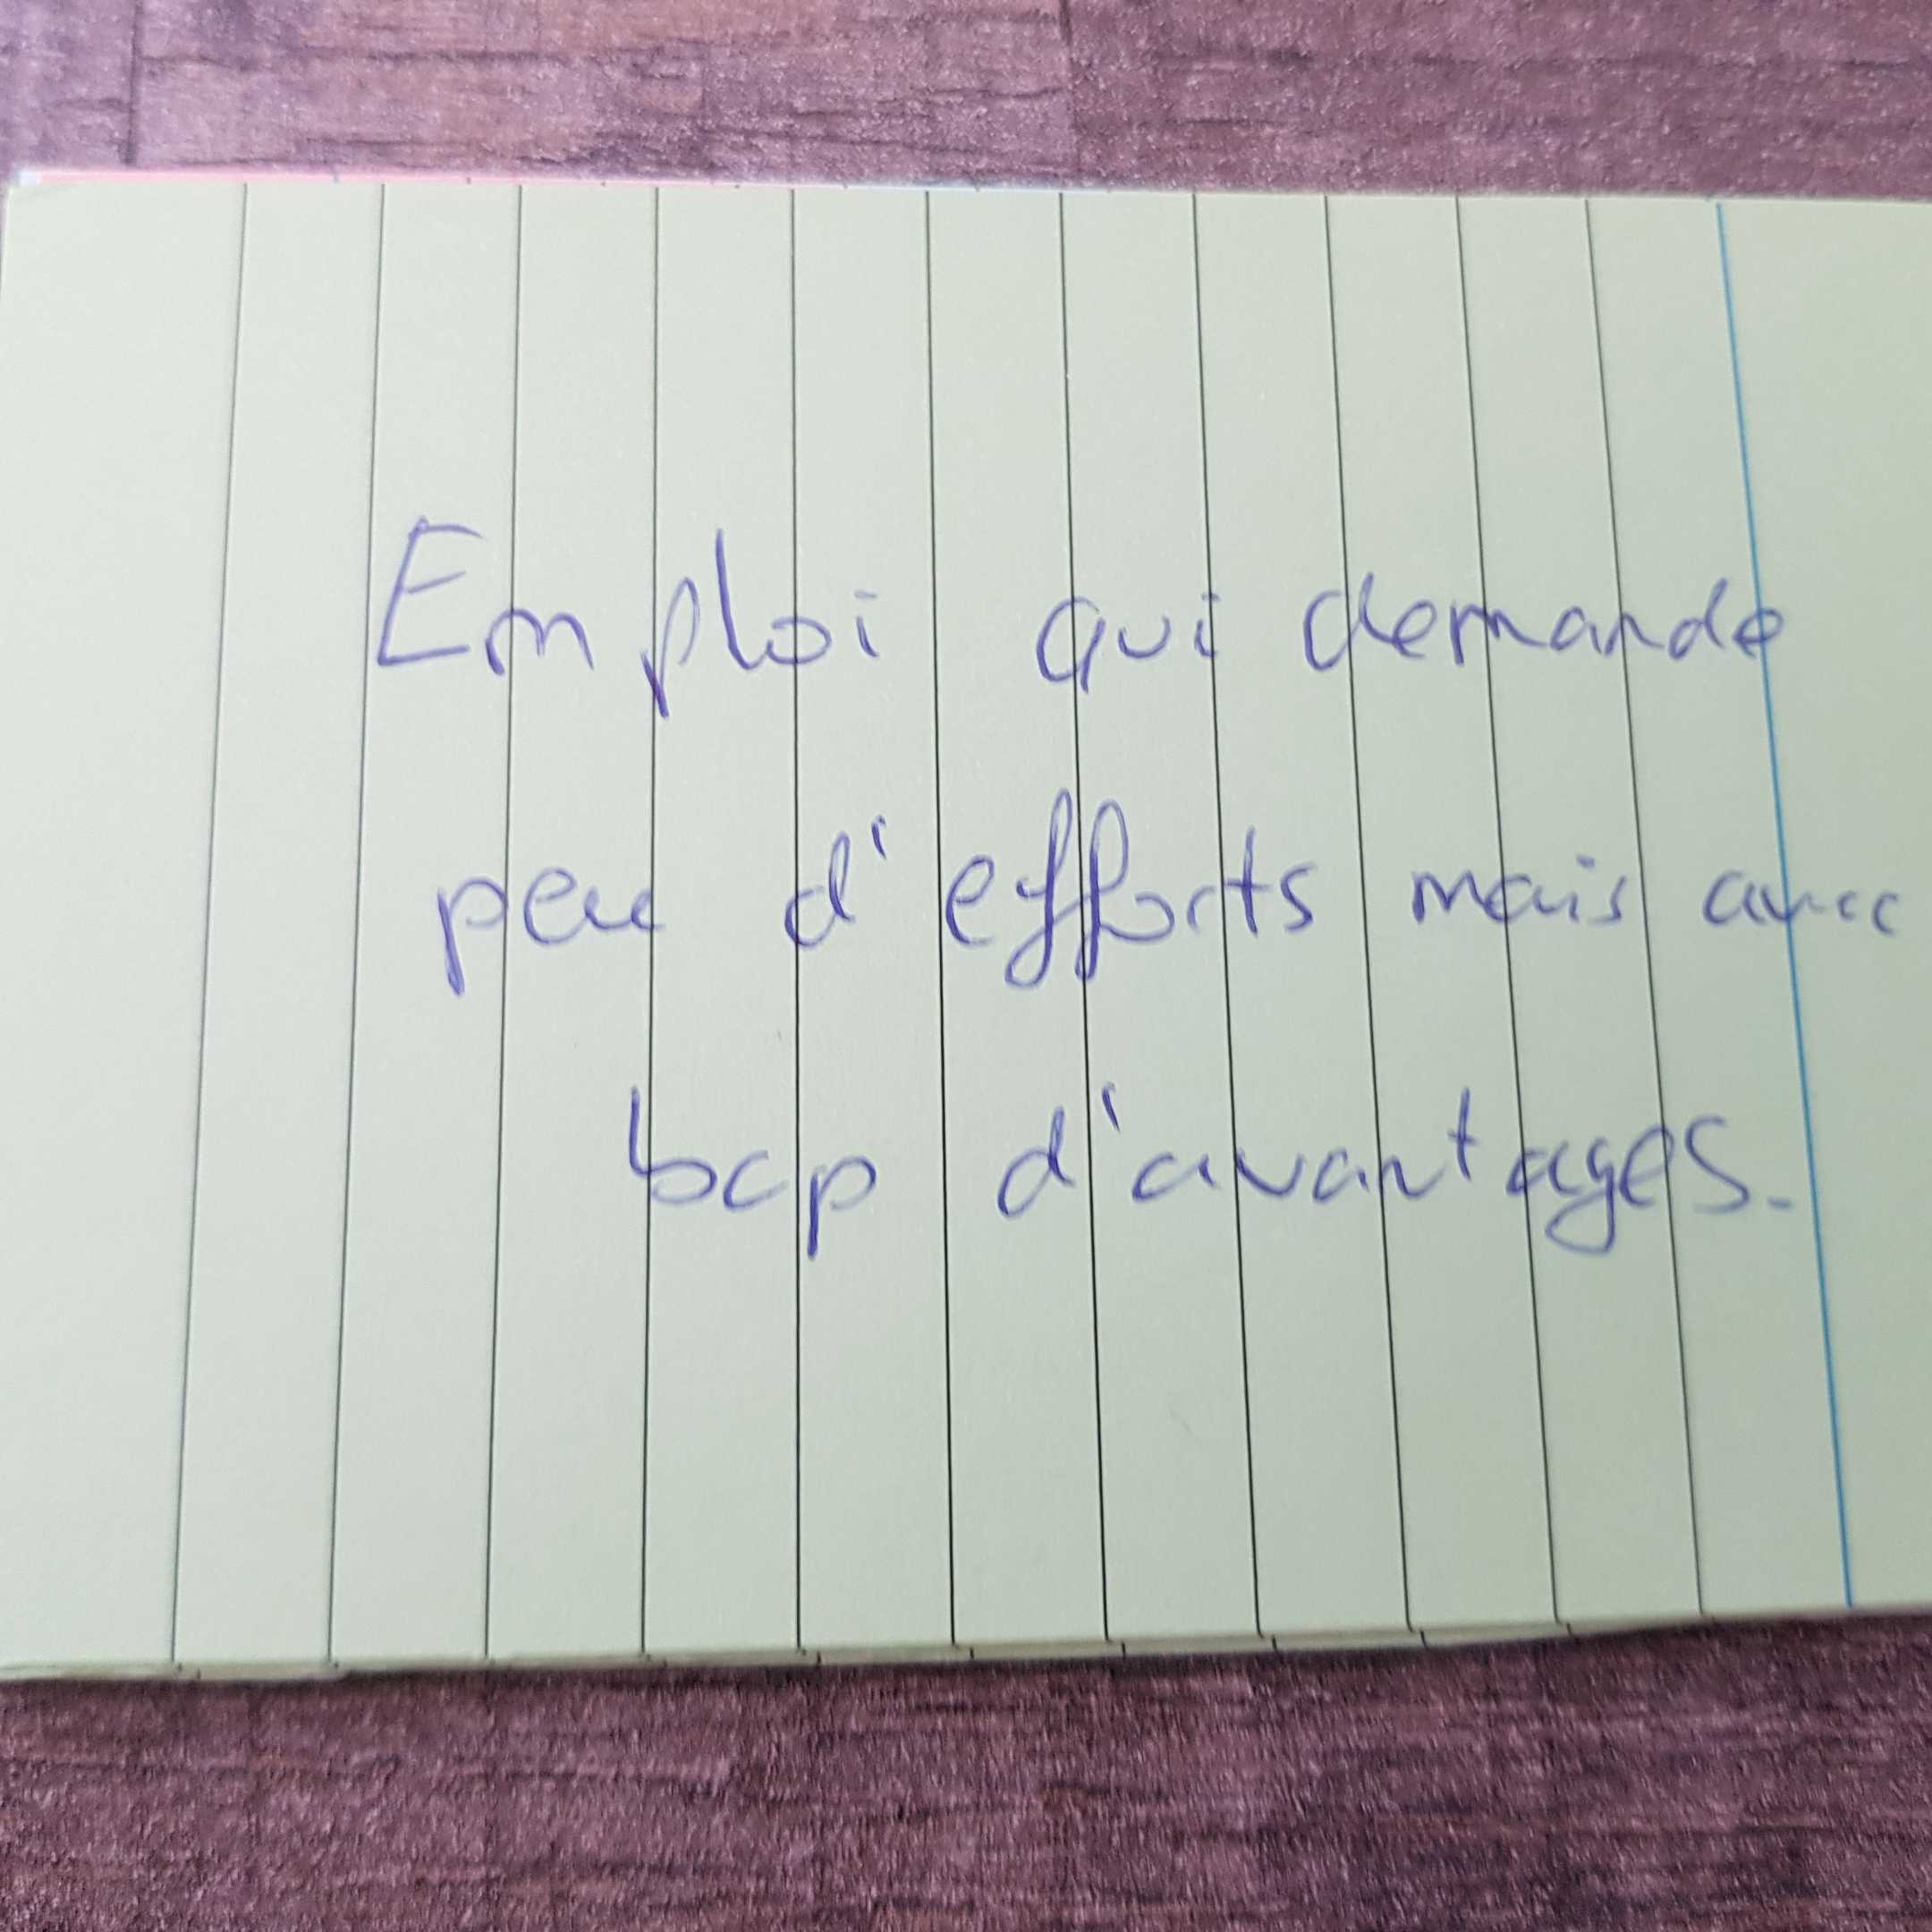 Emploi qui demande
peu d'efforts mais avec
bcp d'avantages.